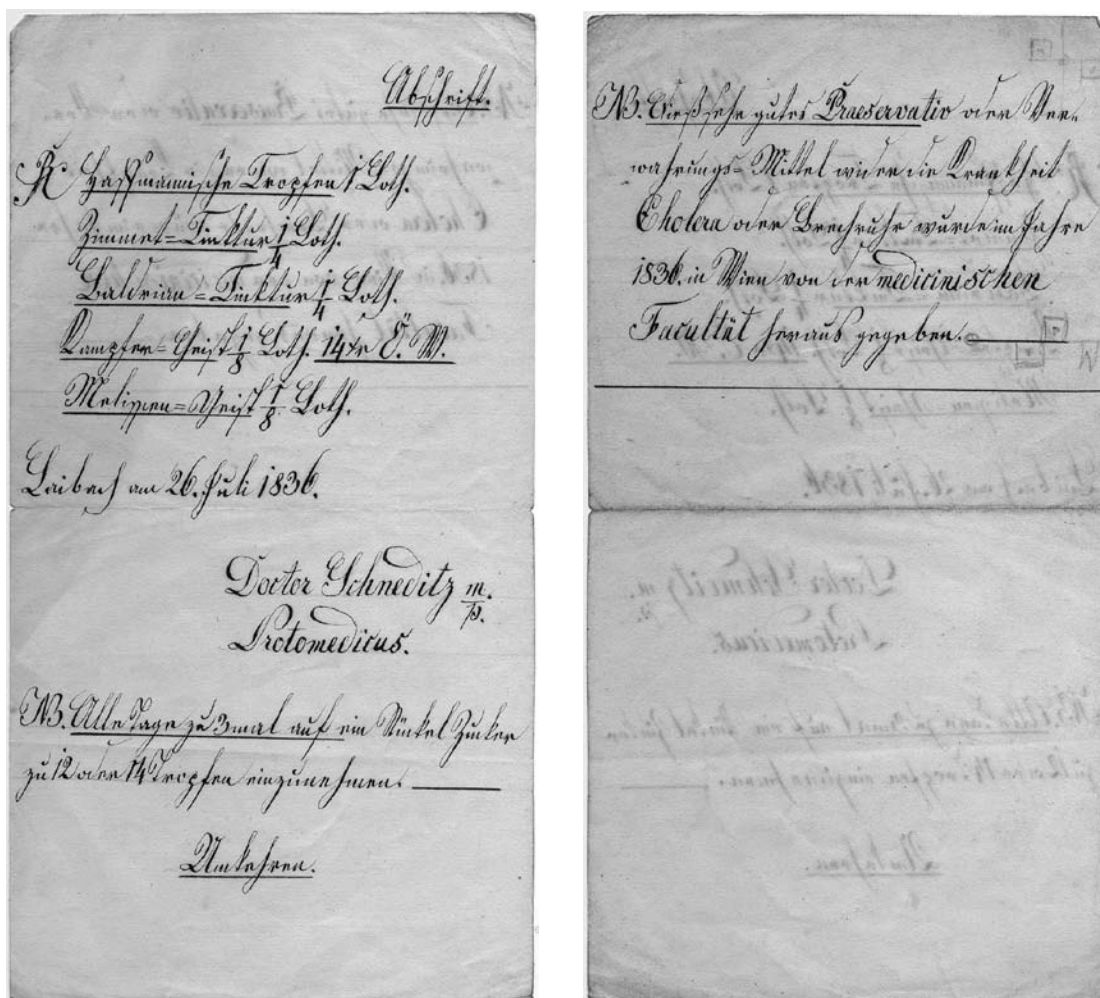 Abschrift.
Rx Hoffmannische Tropfen 1 Loth.
Zimmet=Tinktur 1/4 Loth.
Baldrian=Tinktur 1/4 Loth.
Kampfer=Geist 1/8 Loth. 14 xr Ö. W.
Melissen=Geist 1/8 Loth.
Laibach am 26. Juli 1836.
Doctor Schneditz m/p.
Protomedicus.
NB. Alle Tage zu 3mal auf ein Stückel Zucker
zu 12 oder 14 Tropfen einzunehmen.
Umkehren.
NB. Dieß sehr gutes Praeservativ oder Ver=
wahrungs=Mittel wider die Krankheit
Cholera oder Brechruhr wurde im Jahre
1836. in Wien von der medicinischen
Facultät heraus gegeben.